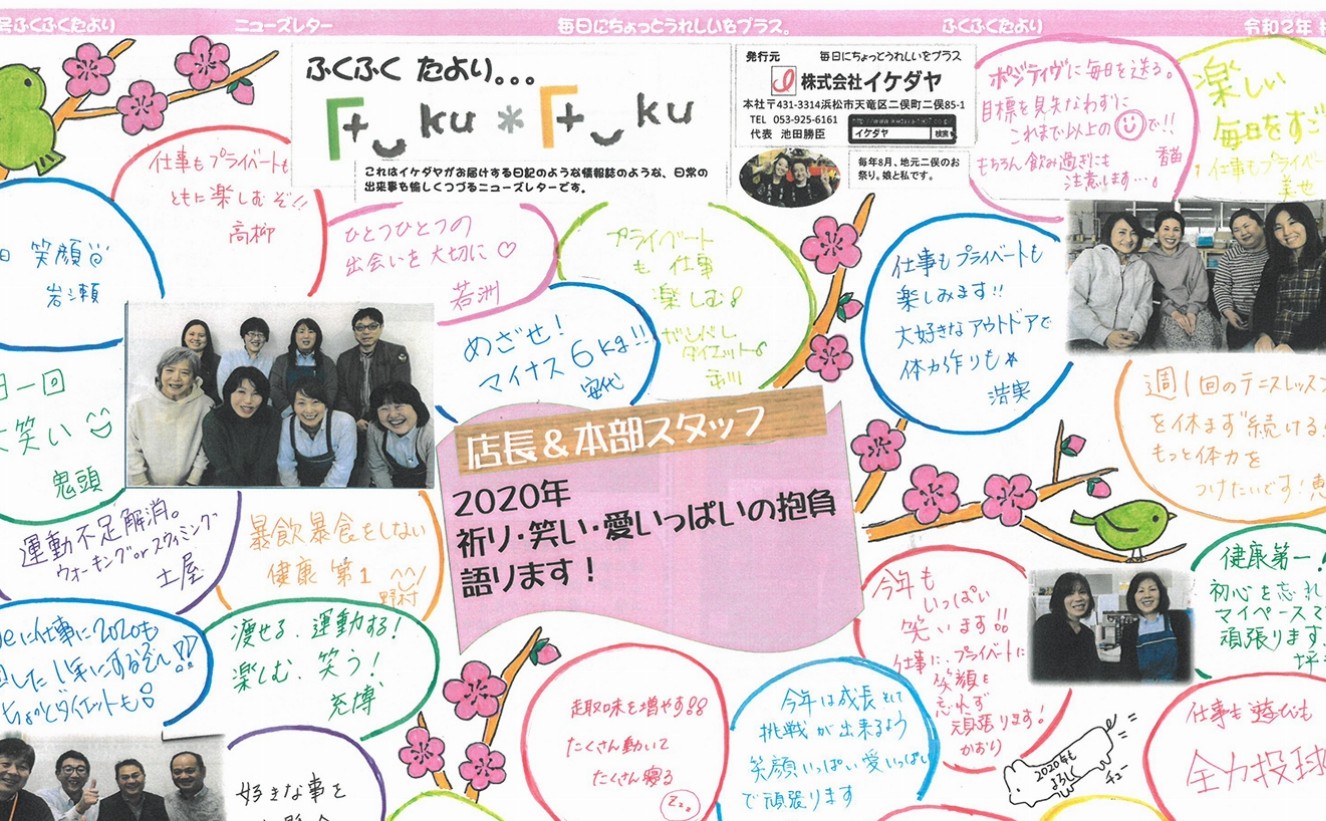 号ふくふくたより
ニューズレター
毎日にちょっとうれしいをプラス。
ふくふくたより
令和2年
ふくふく たより。。。
ku * ku
これはイケダヤがお届けする日記のような情報誌のような、日常の
出来事を愉しくつづるニューズレターです。
発行元
毎日にちょっとうれしいをプラス
株式会社イケダヤ
本社〒431-3314浜松市天竜区二俣町二俣85-1
TEL 053-925-6161
代表 池田勝臣
イケダヤ
検索
毎年8月、地元二俣のお
祭り。娘と私です。
ポジティヴに毎日を送る。
目標を見失なわずに
これまで以上の で!!
もちろん飲み過ぎにも
注意します…。
香苗
楽しい
毎日をすご
仕事もプライベー
美世
仕事もプライベートも
ともに楽しむぞ!!
高柳
ひとつひとつの
出会いを大切に♡
若洲
プライベート
も 仕事
楽しむ
がんばし
ダイエット
笑顔
岩瀬
めざせ!
マイナス6kg!!
安代
仕事もプライベートも
楽しみます!!
大好きなアウトドアで
体力作りも
浩実
日一回
大笑い
鬼頭
週1回のテニスレッスン
を休まず続ける
もっと体力を
つけたいです!
店長&本部スタッフ
2020年
祈り・笑い・愛いっぱいの抱負
語ります!
運動不足解消。
ウォーキングorスウィミング
土屋
暴飲暴食をしない
健康第1
野村
仕事に2020も
した1年にするぞ
ちょっとダイエットも
痩せる、運動する!
楽しむ、笑う!
充博
今年も
いっぱい
笑います!!
仕事に、プライベートに
笑顔を
忘れず
頑張ります!
かおり
健康第一!
初心を忘れ
マイペースで
頑張ります
坪
趣味を増やす!!
たくさん動いて
たくさん寝る
Zzz
今年は成長そして
挑戦が出来るよう
笑顔いっぱい愛いっぱい
で頑張ります
2020年も
よろしく
チュー
仕事も遊びも
全力投球
好きな事を